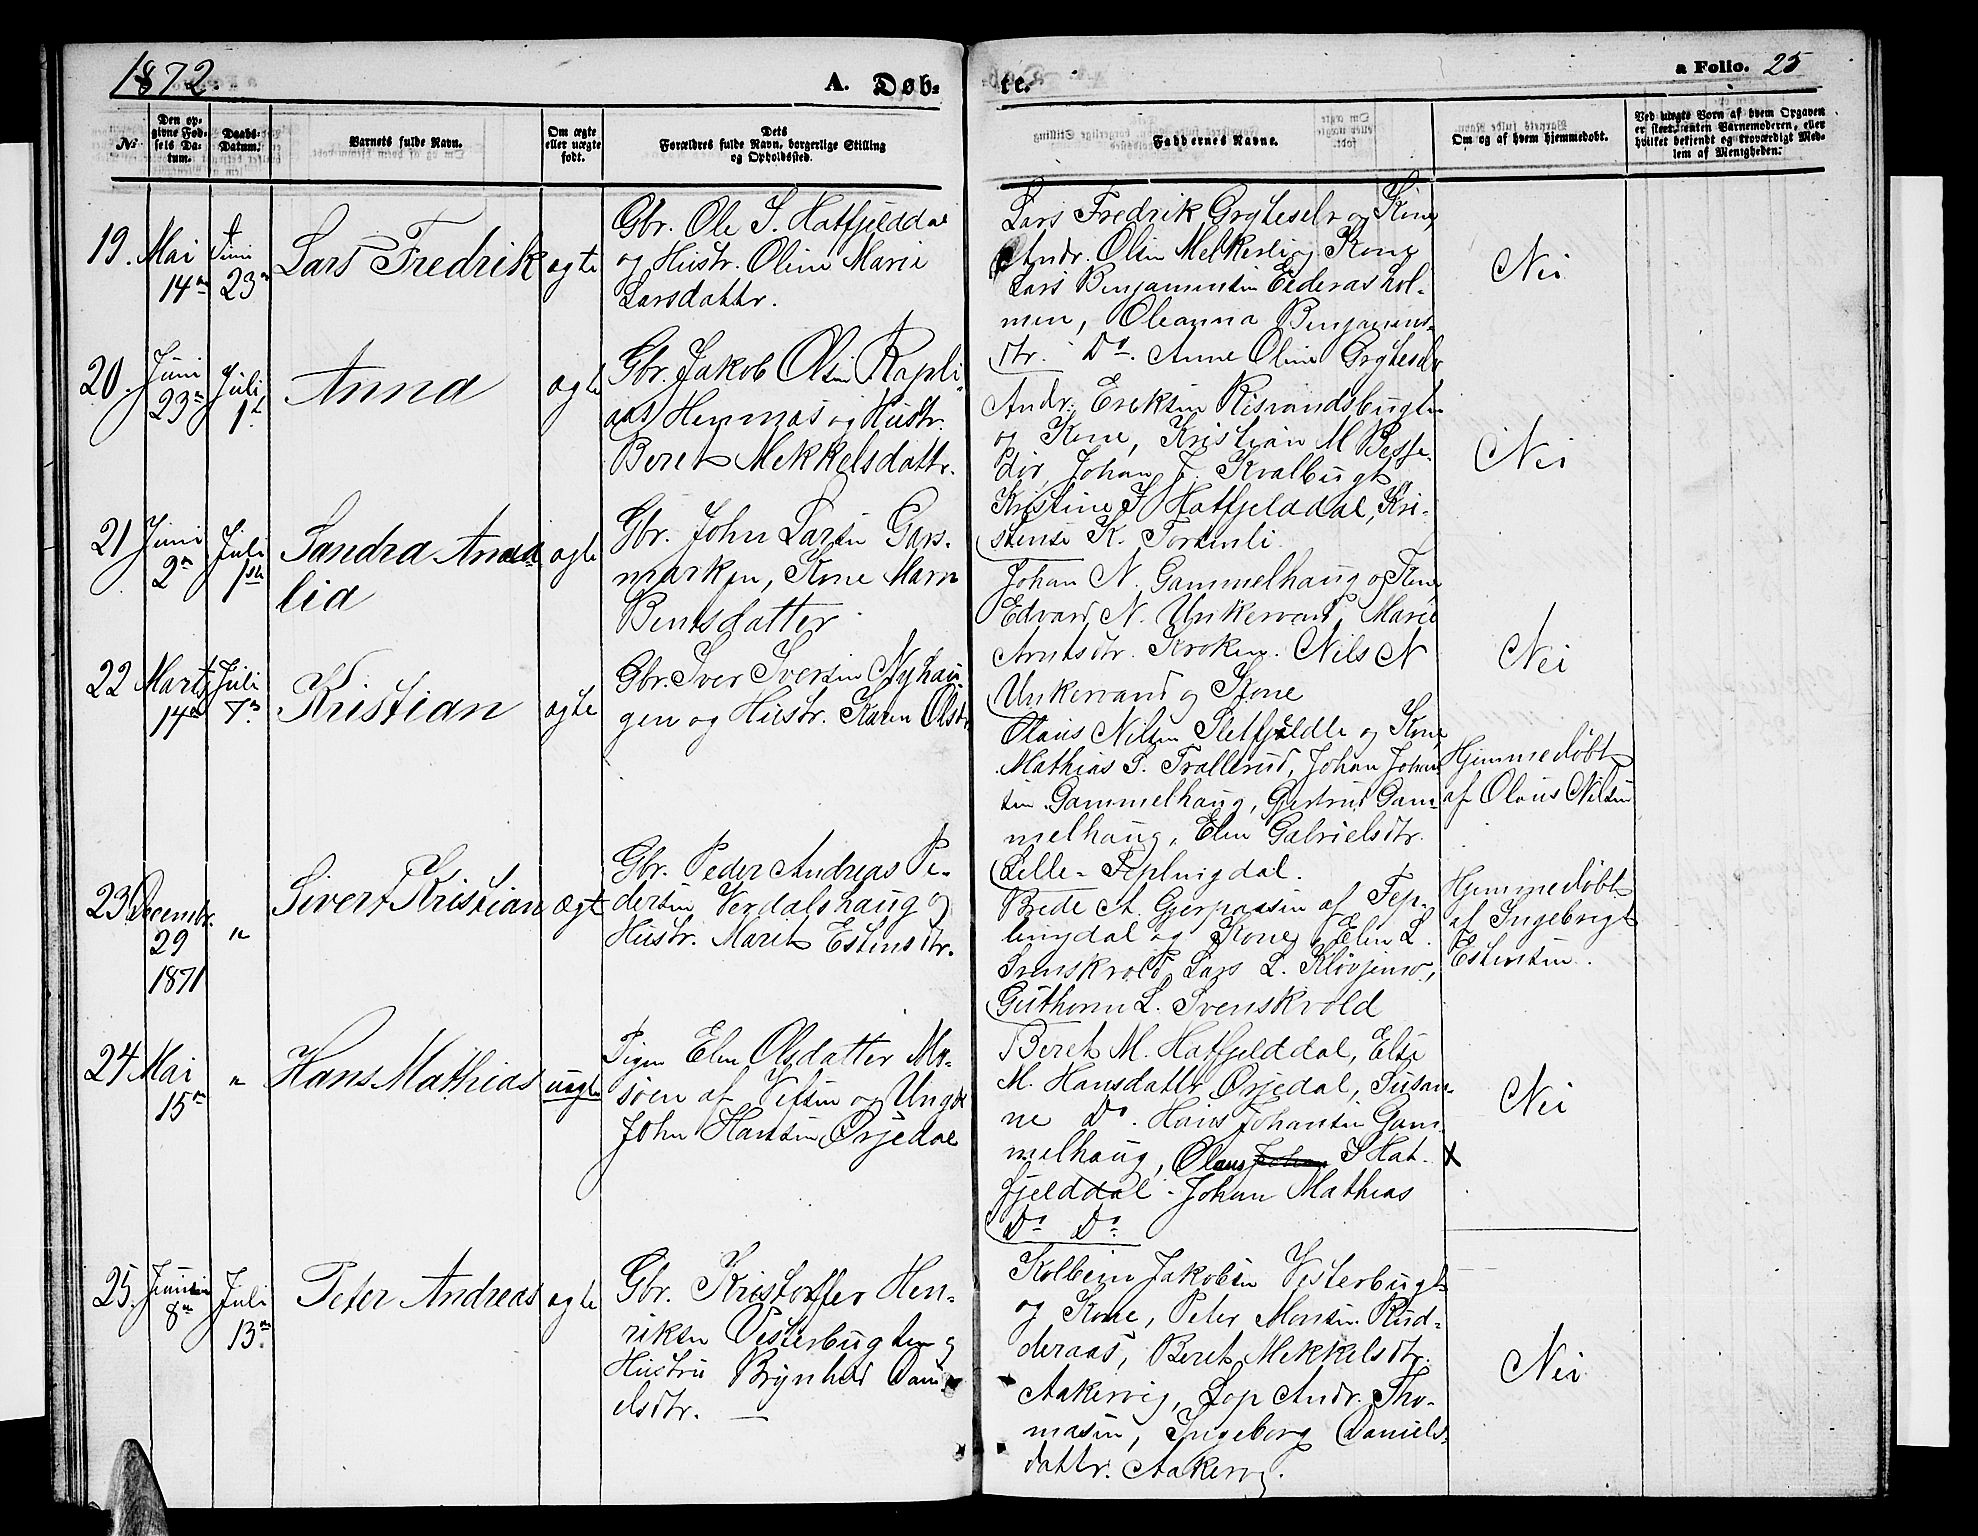 1872.
A. Døb-
te.
a Folio. 25
No.
Den op-
givne Fød-
sels Da-
tum.
Daabs-
Datum.
Barnets fulde Navn.
Om ægte
eller uægte
født.
Dets
Forældres fulde Navn, borgerlige Stilling
og Opholdssted.
Faddernes Navne.
Om og af hvem hjemmedøbt.
Ved uægte Børn af hvem Opgaven
er skeet, enten Barnemoderen, eller
hvilket bekjendt og troværdigt Med-
lem af Menigheden.
19. Mai
14n
Juni
23n
Lars Fredrik
ægte
Gbr. Ole S. Hatfjelddal
og Hustr. Oline Marie
Larsdattr.
Lars Fredrik Gryteselv og Kone,
Andr. Olsen Mekkerli og Kone
Lars Benjaminsen Elderasshol-
men, Oleanna Benjamins-
dtr. Do. Anne Oline Gryteselv
Nei
20. Juni
23n
Juli
1st
Anna
ægte
Gbr. Jakob Olsen Rapli-
aas Hemnæs og Hustr.
Beret Mekkelsdattr.
Andr. Eriksen Risvandsbugten
og Kone, Kristian M Besse-
dør, Johan J. Kvalbugt
Kristine J Hatfjelddal, Kri-
stense K. Fortenli.
Nei
21 Juni
2n
Juli
1ste
Sandra Ama
lia
ægte
Gbr. John Larsen Gars-
marken, Kone Maren
Bentsdatter
Johan N. Gammelhaug og Kone
Edvard N. Unkervand, Marie
Arntsdtr. Kroken. Nils N
Unkervand og Kone
Nei
22 Marts
14n
Juli
7n
Kristian
ægte
Gbr. Iver Iversen Nyhau-
gen og Hustr. Karen Olsdtr.
Olaus Nilsen Sletfjeldli og Kone
Mathias S. Trallerud, Johan Johan
sen Gammelhaug, Gjertrud Gam-
melhaug, Elen Gabrielsdtr.
Lille-Fiplingdal.
Hjemmedøbt
af Olaus Nilsen
23 Decembr.
29
1871
"
Sivert Kristian
ægte
Gbr. Peder Andreas Pe-
dersen Verdalshaug og
Hustr. Maret Estensdtr.
Brede A. Gjerpaasen af Fep-
lingdal og Kone, Elen L.
Svenskvold, Lars L. Kløvjemo,
Guthorm L. Svenskvold
Hjemmedøbt
af Ingebrigt
Estensen.
24 Mai
15n
"
Hans Mathias
uægte
Pigen Elen Olsdatter Mo-
søen af Vefsen og Ungk
John Hansen Ørjedal
Beret M. Hatfjelddal, Else
M. Hansdattr Ørjedal, Susan-
ne Do. Hans Johansen Gam-
melhaug, Olaus S Hat-
fjelddal. Johan Mathias
Do Do
Nei
X
25. Juni
8n
Juli
13n
Peter Andreas
ægte
Gbr. Kristoffer Hen-
riksen Vesterbugten og
Hustru Brynhild Dani
elsdtr.
Kolbein Jakobsen Vesterbugt
og Kone, Peter Monsen Rud-
deraas, Beret Mekkelsdtr.
Aakervig, Lap Andr. Tho-
masen, Ingeborg Daniels-
dattr. Aakervig.
Nei